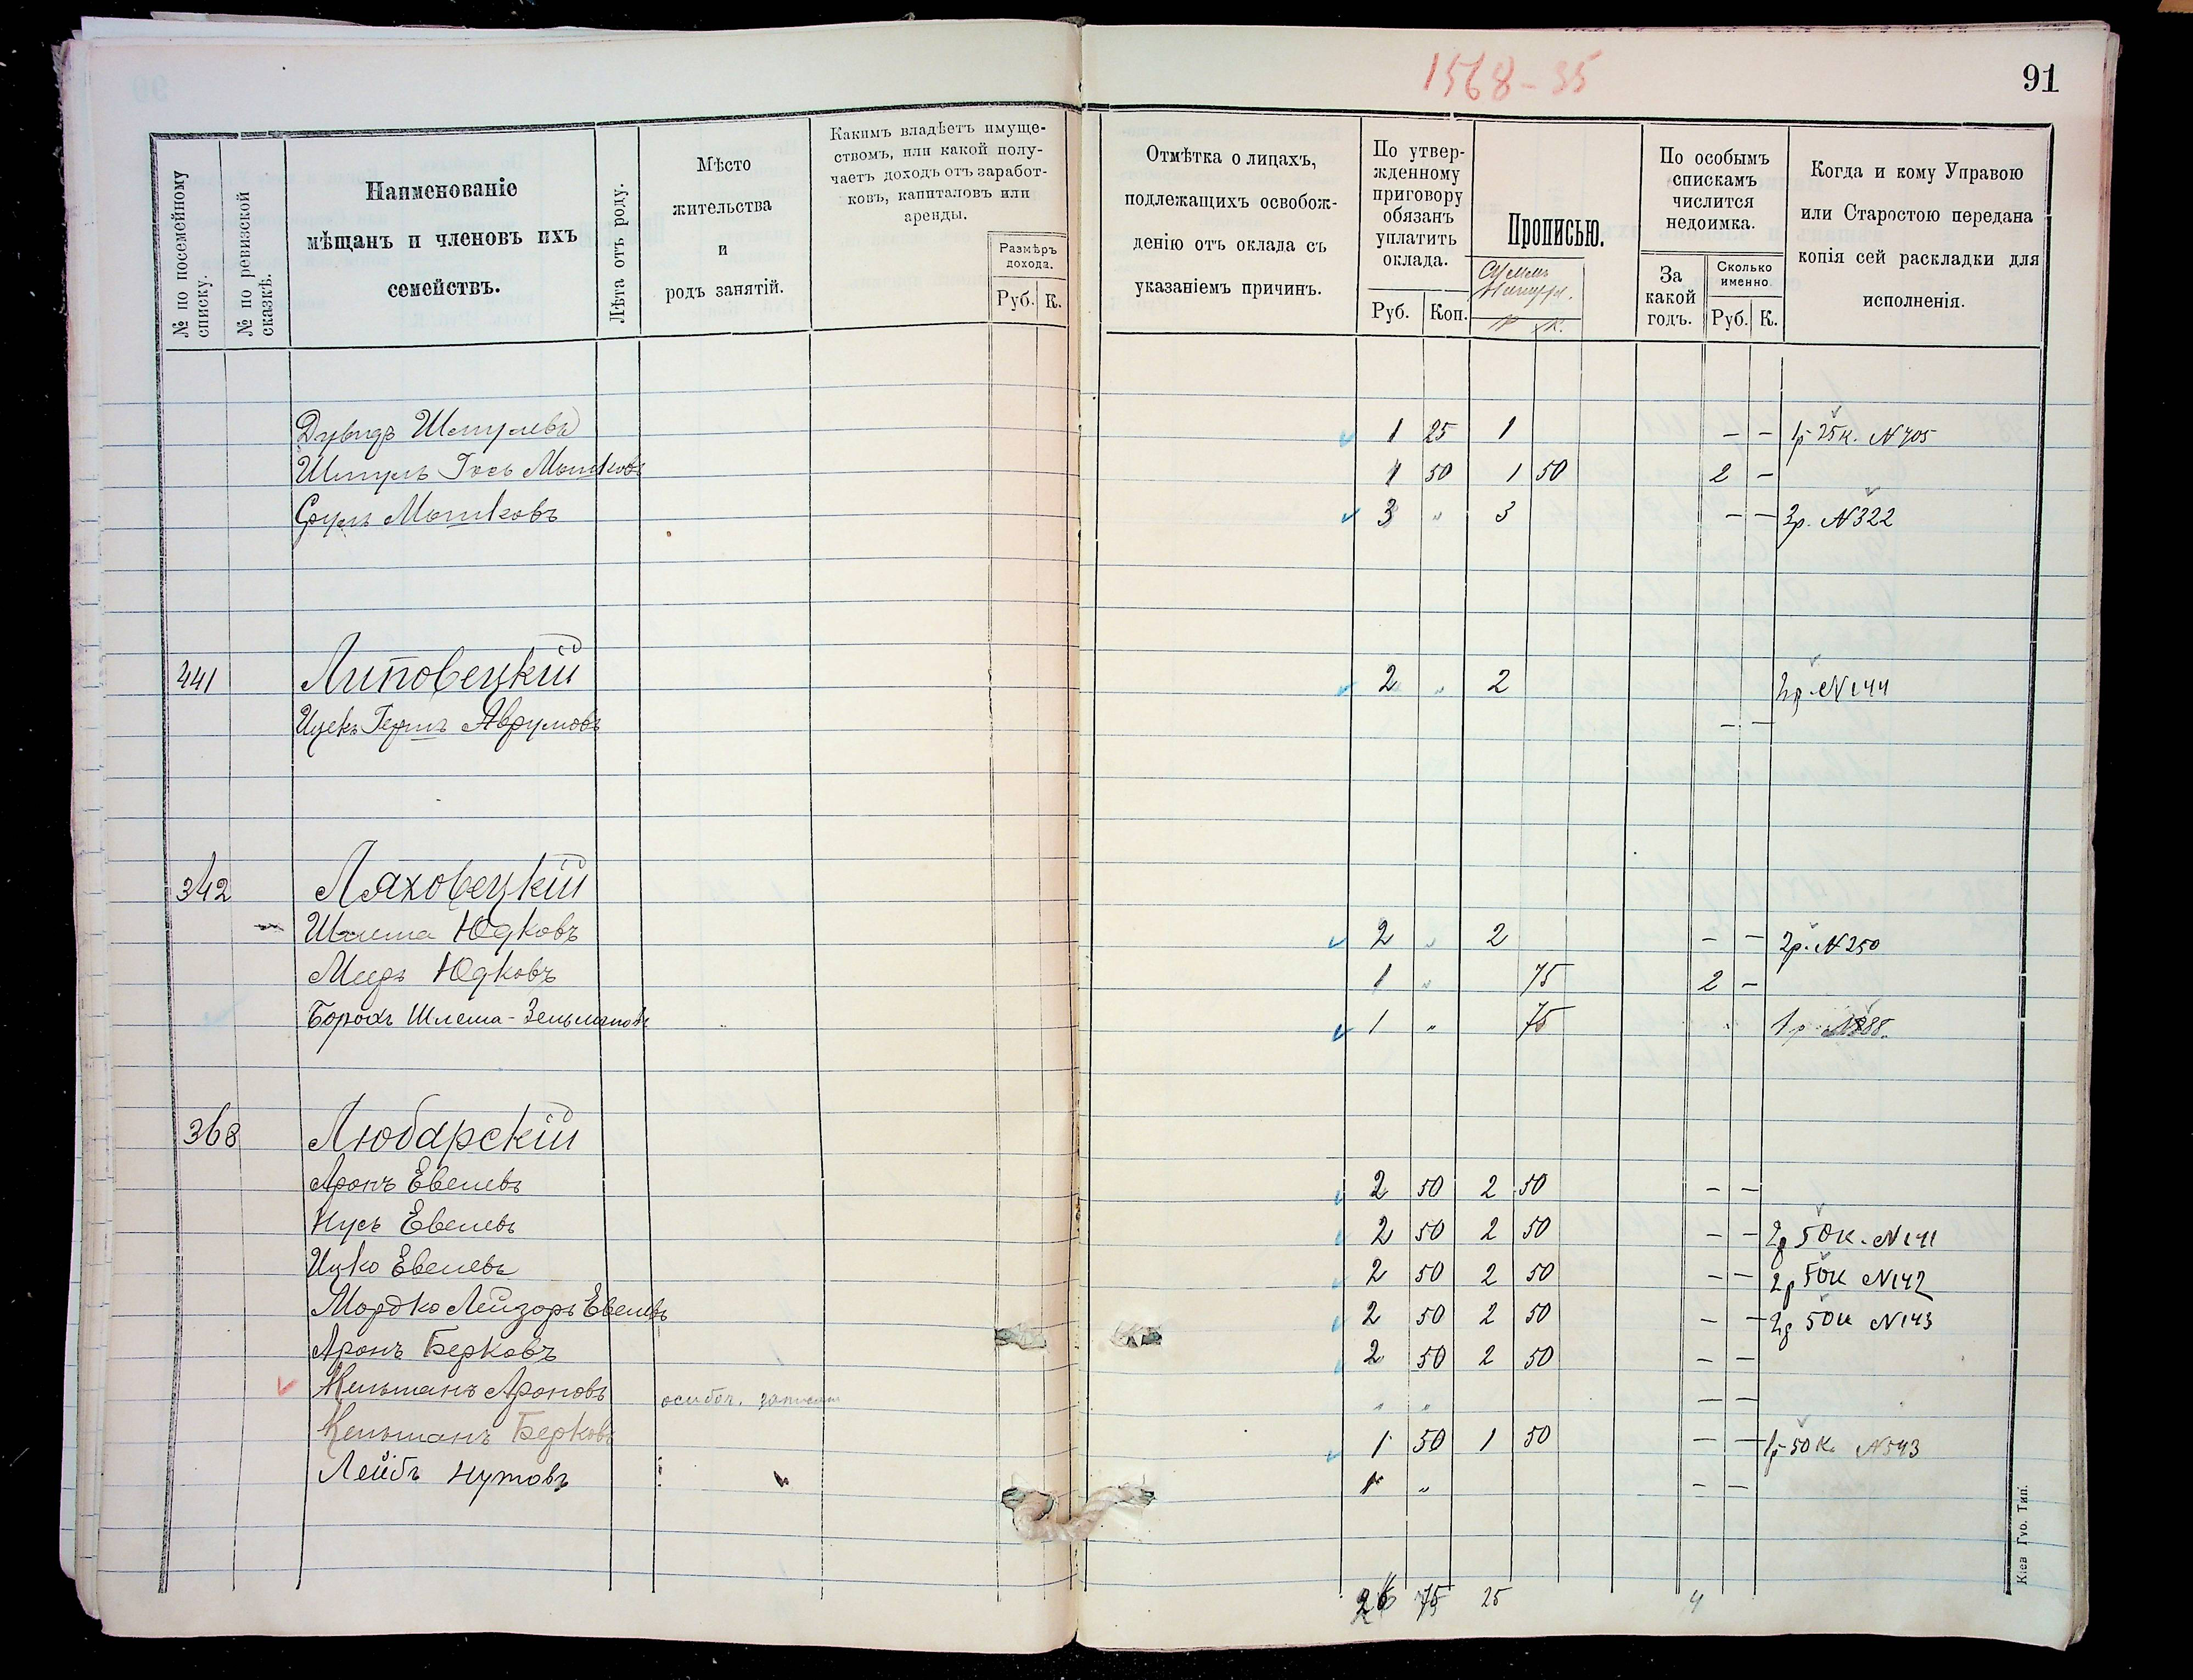 1568-35
91
№ по посемейному списку.
№ по ревизской сказкѣ.
Наименованіе
мѣщанъ и членовъ ихъ
семействъ.
Лѣта отъ роду.
Мѣсто
жительства
и
родъ занятій.
Какимъ владѣетъ имуще-
ствомъ, или какой полу-
чаетъ доходъ отъ заработ-
ковъ, капиталовъ или
аренды.
Размѣръ
дохода.
Руб. К.
Отмѣтка о лицахъ,
подлежащихъ освобож-
денію отъ оклада съ
указаніемъ причинъ.
По утвер-
жденному
приговору
обязанъ
уплатить
оклада.
Руб. Коп.
Прописью.
Р К.
По особымъ
спискамъ
числится
недоимка.
За
какой
годъ.
Сколько
именно
Руб. К.
Когда и кому Управою
или Старостою передана
копія сей раскладки для
исполненія.
Дувидъ Шмулевъ 1 25 1 — — 1р 25к. N 705
Шмулъ Іосъ Мошковъ 1 50 1 50 2 —
Срулъ Мошковъ 3 " 3 — — 3р. N 322
441 Липовецкій 2 " 2 2р. N 144
Ицекъ Гершъ Аврумовъ — —
342 Ляховецкій
Шлема Юдковъ 2 " 2 — — 2р. N 250
Мееръ Юдковъ 1 " 75 2 —
Борохъ Шлема-Зельмановъ 1 " 75 1р
368 Любарскій
Аронъ Евелевъ 2 50 2 50 — —
Нусъ Евелевъ 2 50 2 50 — — 2р 50к. N 141
Ицко Евелевъ 2 50 2 50 — — 2р 50к N 142
Мордко Лейзоръ Евелевъ 2 50 2 50 — — 2р 50к N 143
Аронъ Берковъ 2 50 2 50 — —
Кельманъ Ароновъ " " — —
Кельманъ Берковъ 1 50 1 50 — — 1р 50к. N 543
Лейбъ Нутовъ " — —
26 75 25 4
Кіев. Губ. Тип.